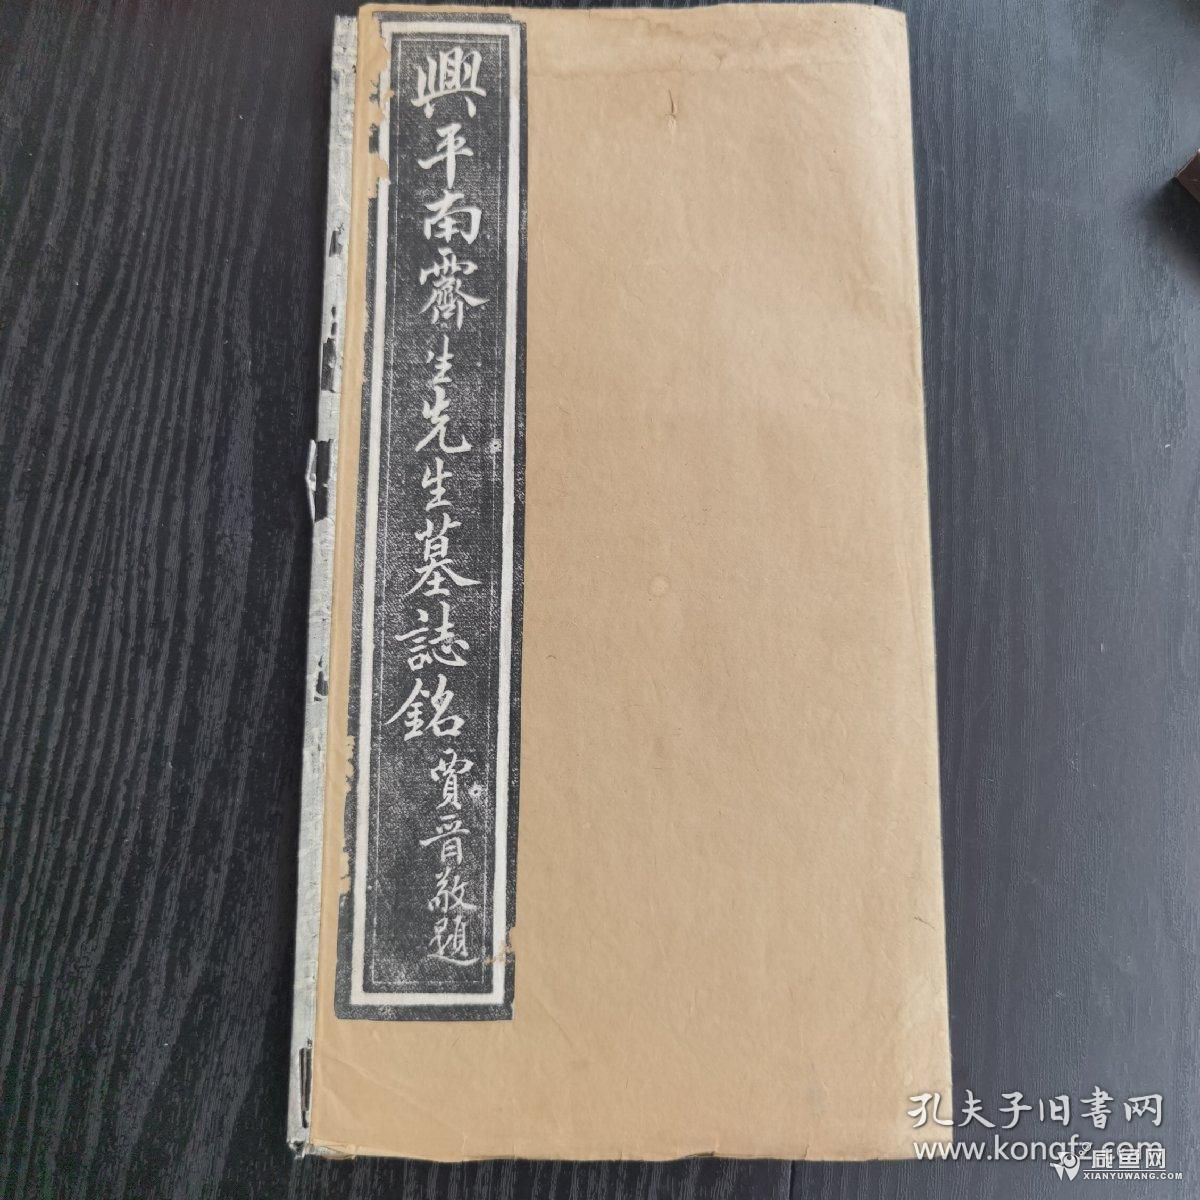 興平南霽生先生墓誌銘 賈晋敬題
孔夫子旧書网
www.kongfz.com
咸鱼网
XIANYUWANG.COM